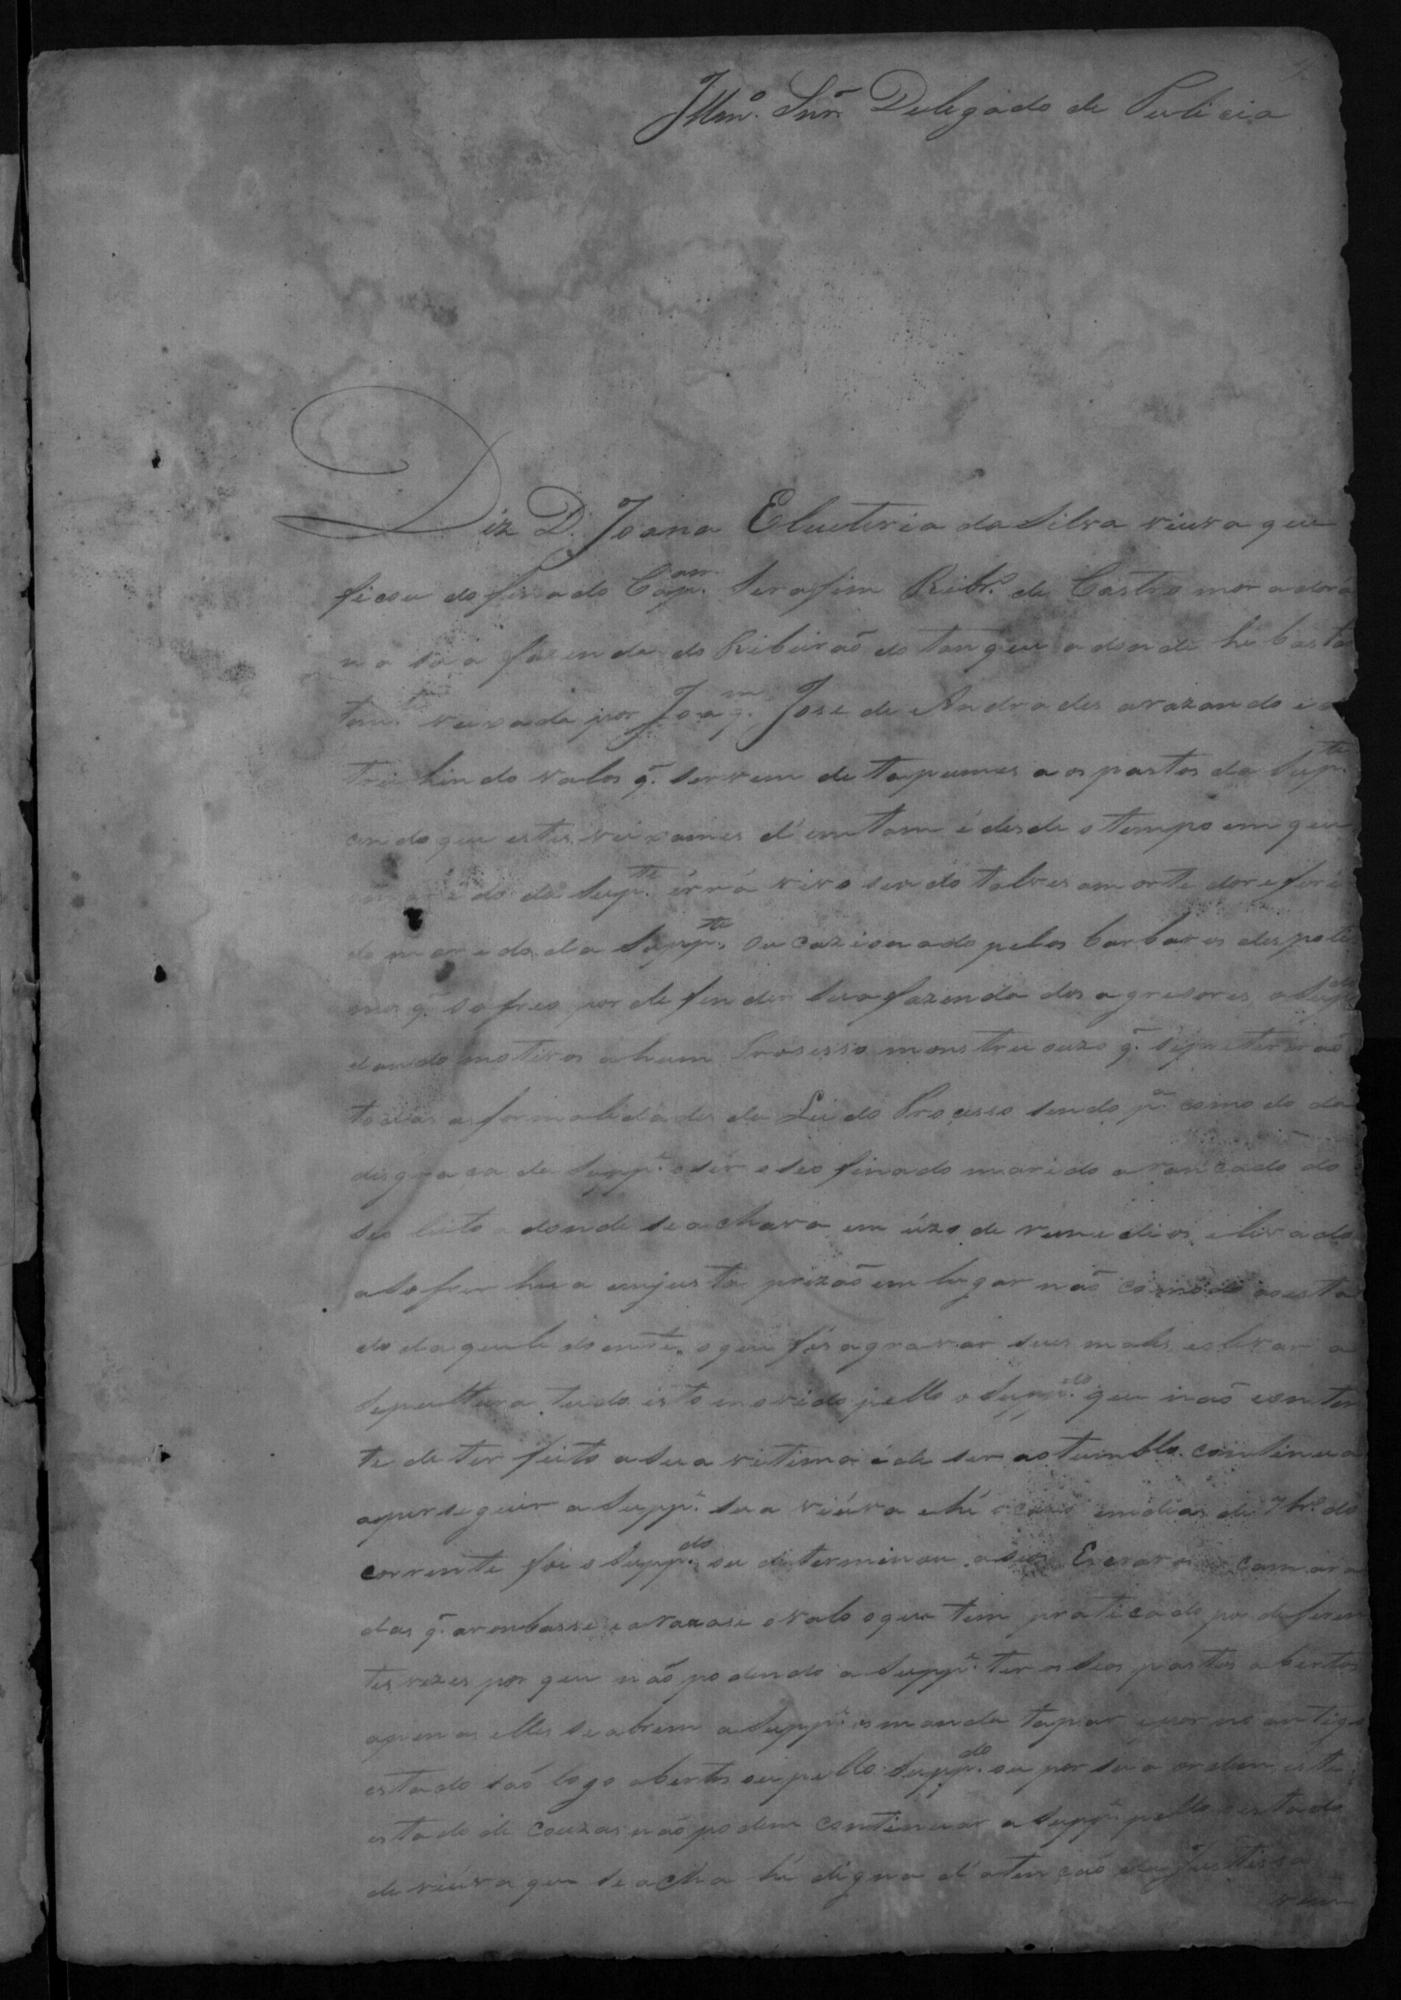 Illmo. Snr. Delegado de Policia
Diz D. Joana Eleuteria da Silva viuva que
ficou do finado Capam. Serafim Ribro. de Castro moradora
na sua fazenda do Ribeirão do tanque adonde hé basta
temte vexada por Joaqm. Jose de Andrades arazando e
trichindo valos q. servem de tapumes aos pastos da Supte
endo que estes veixames d'emtam é desde o tempo em que
marido da Supte érrá vivo sendo talves amorte do referi
do marido da Suppte oucazionado pelos barbaros despoti
mos q. sofreo por defender sua fazenda dos agresores o Supdo
dando motivos a hum Prosesso monstruouzo q. sepreterirão
todas as formalidades da Lei do Processo sendo pr. comodo da
disgraca da Suppe. o ser o seo finado marido arancado do
seo leito adonde se achava em úzo de remedios, e livado
a sofrer hua injusta prizão em lugar não cómodo ao esta
do daquele doente, o que fés agravar seus males, e levar a
Sepulttura, tudo isto movido pello o Suppdo. que não conten
te de ter feito a sua vitima é de ser ao tumbllo. continua
aperseguir a Suppe. sua viúva e hé o cazo em dias de 7bro. do
corrente foi o Suppdo. ou determinou a seos Escravos e camara
das q. arombasse e arazase o valo o que tem praticado por deferen
tes vezes por que não podendo a Suppe. ter os seos pastos abertos
apenas elles se abrem a Suppe. os manda tapar e por no antigo
estado são logo abertos ou pello Suppdo. ou por sua ordem este
estado de couzas não podem continuar a Suppe. pello estado
de viúva que se acha hé digna d'atenção da justissa